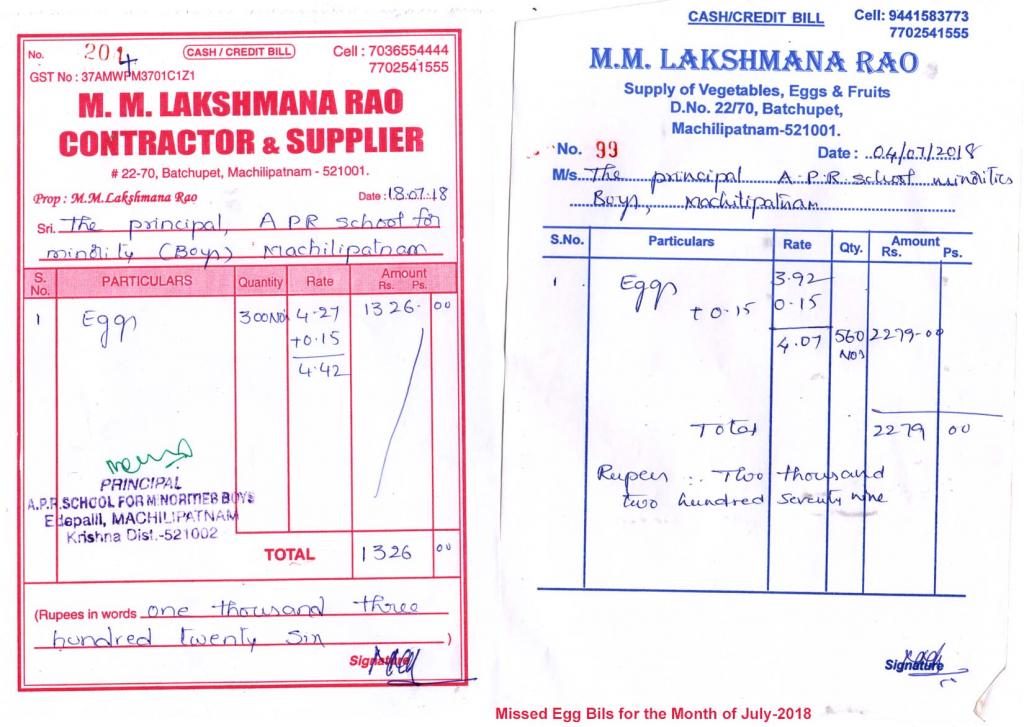 No. 204
CASH / CREDIT BILL
Cell : 7036554444
7702541555
GST No : 37AMWPM3701C1Z1
M. M. LAKSHMANA RAO
CONTRACTOR & SUPPLIER
# 22-70, Batchupet, Machilipatnam - 521001.
Prop : M.M.Lakshmana Rao
Date : 18.07.18
Sri. The principal, A P R school for
minority (Boys) Machilipatnam
S. No. PARTICULARS Quantity Rate Amount Rs. Ps.
1 Eggs 300 Nos 4.27 1326- 00
+0.15
4.42
PRINCIPAL
A.P.R.SCHOOL FOR MINORITIER BOYS
Edepalli, MACHILIPATNAM
Krishna Dist.-521002
TOTAL 1326 00
(Rupees in words one thousand three
hundred twenty six )
Signature
CASH/CREDIT BILL
Cell: 9441583773
7702541555
M.M. LAKSHMANA RAO
Supply of Vegetables, Eggs & Fruits
D.No. 22/70, Batchupet,
Machilipatnam-521001.
No. 99
Date : 04/07/2018
M/s. The principal A.P.R. school minorities
Boys, Machilipatnam
S.No. Particulars Rate Qty. Amount Rs. Ps.
1 Eggs 3.92
+0.15 0.15
4.07 560 Nos 2279-00
Total 2279 00
Rupees : Two thousand
two hundred seventy nine
Signature
Missed Egg Bils for the Month of July-2018